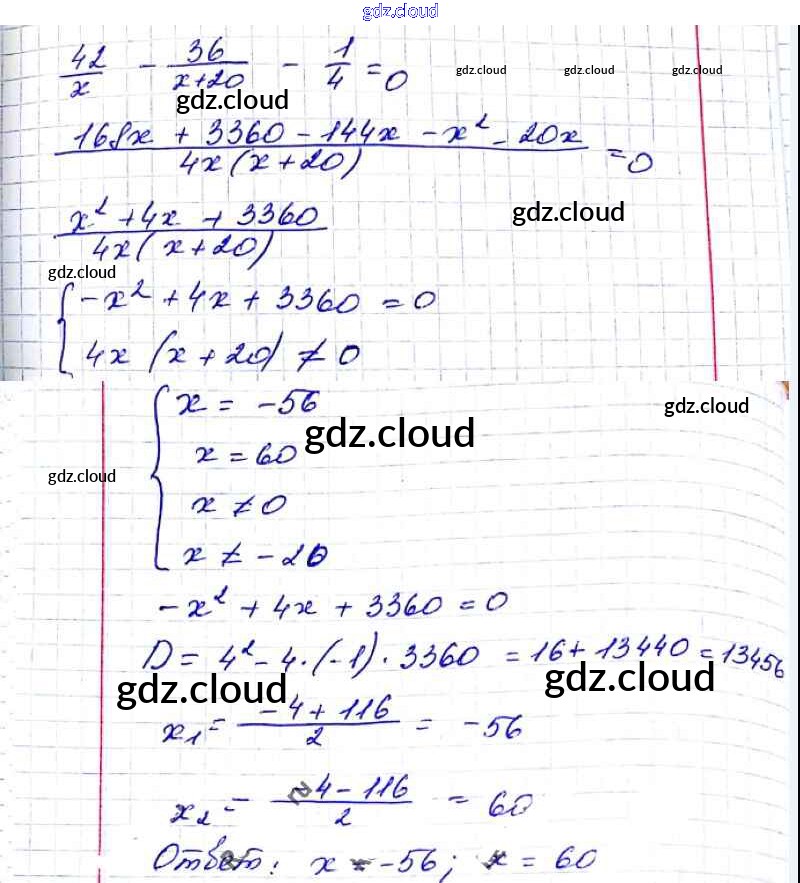 gdz.cloud
42/x - 36/(x+20) - 1/4 = 0
gdz.cloud gdz.cloud gdz.cloud
gdz.cloud
(168x + 3360 - 144x - x² - 20x)/(4x(x+20)) = 0
(x² + 4x + 3360)/(4x(x+20))
gdz.cloud
gdz.cloud
{ -x² + 4x + 3360 = 0
4x(x+20) ≠ 0
{ x = -56
gdz.cloud
gdz.cloud
x = 60
gdz.cloud
x ≠ 0
x ≠ -20
-x² + 4x + 3360 = 0
D = 4² - 4·(-1)·3360 = 16 + 13440 = 13456
gdz.cloud gdz.cloud
x₁ = (-4 + 116)/2 = -56
x₂ = (-4 - 116)/2 = 60
Ответ: x = -56; x = 60